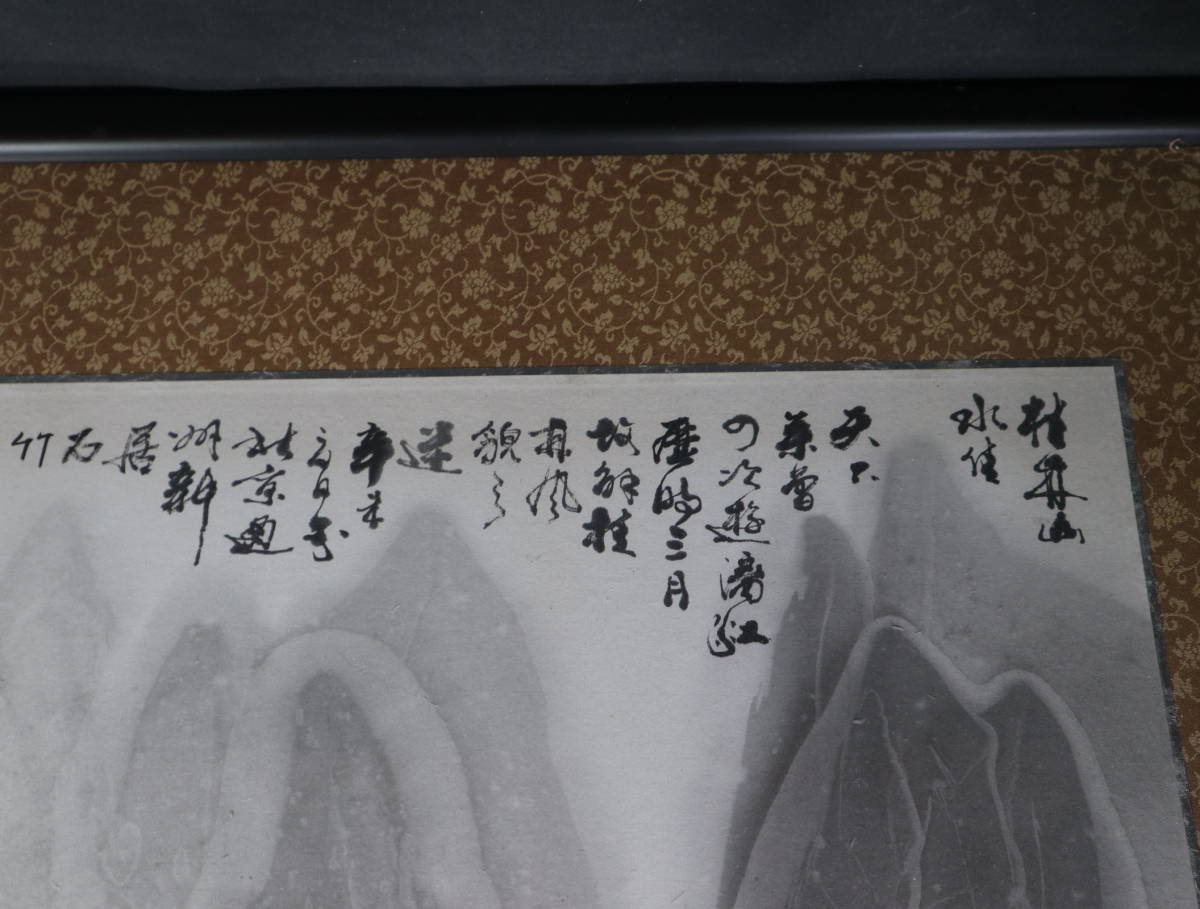 桂林山
水佳
天下
業曾
四次遊漓江
歷時三月
故解桂
林風
貌之
迷
辛未
元日写
於京通
湖新
居
石
竹